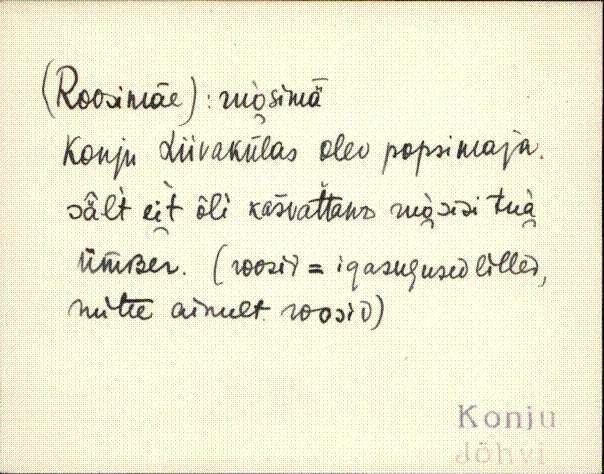 (Roosimäe): ruo̭simä̆
Konju Liivakülas olev popsimaja.
säl̀t ei̭t̀ õli kašvattanD ruo̭sisi tua̭
ümBer. (roosid = igasugused lilled,
mitte ainult roosid)
Konju
Jõhvi